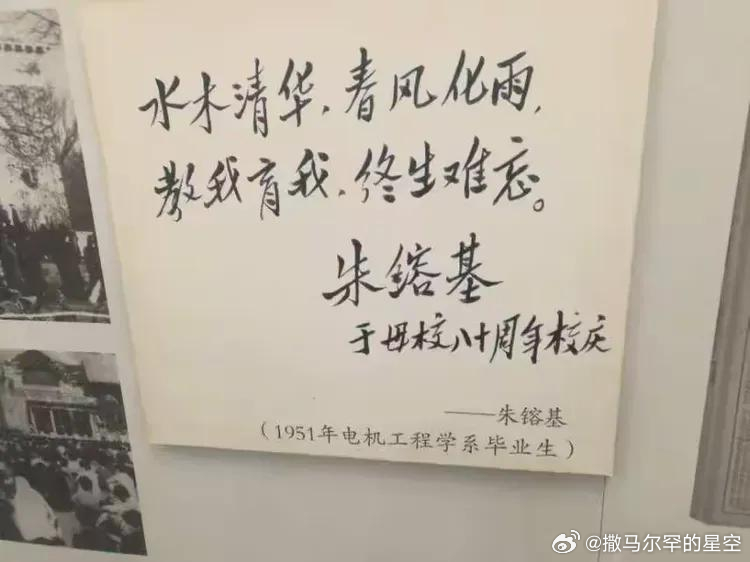 水木清华，春风化雨，
教我育我，终生难忘。
朱镕基
于母校八十周年校庆
——朱镕基
（1951年电机工程学系毕业生）
@撒马尔罕的星空